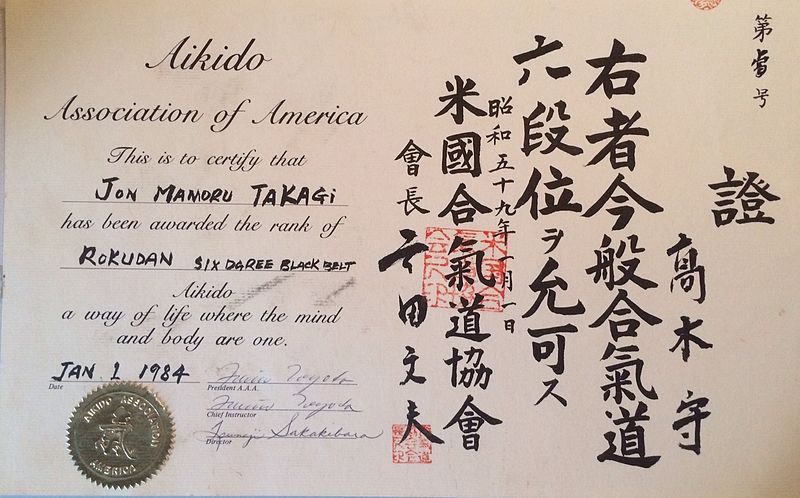 Aikido
Association of America
This is to certify that
JON MAMORU TAKAGI
has been awarded the rank of
ROKUDAN SIX DGREE BLACK BELT
Aikido
a way of life where the mind
and body are one.
JAN 1 1984 Fumio Toyoda
Date President A.A.A.
Fumio Toyoda
Chief Instructor
Tsuneji Sakakibara
Director
AIKIDO ASSOCIATION
氣
AMERICA
第 号
證
高木守
右者今般合氣道
六段位ヲ允可ス
昭和五十九年一月一日
米國合氣道協會
會長 田文夫